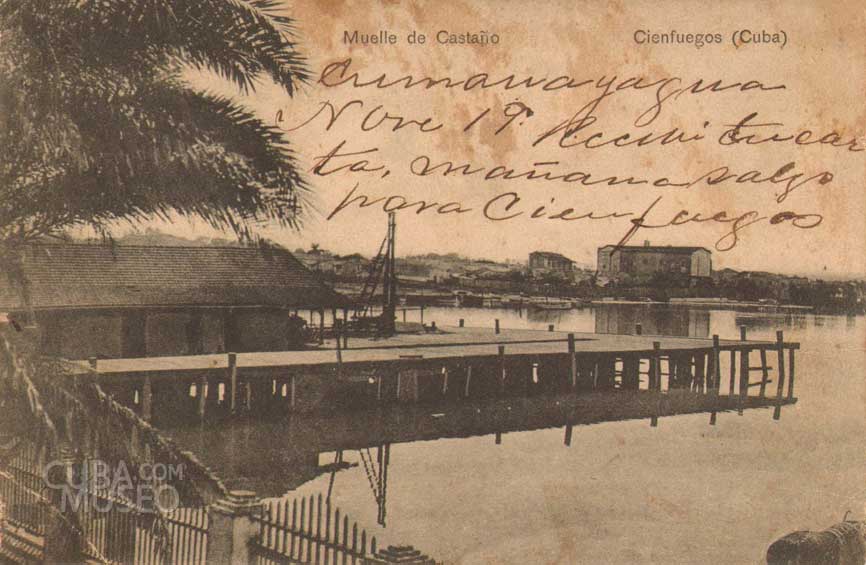 Muelle de Castaño Cienfuegos (Cuba)
Cumanayagua
Nov. 19. Recibi tu car
ta, mañana salgo
para Cienfuegos
CUBA.COM
MUSEO